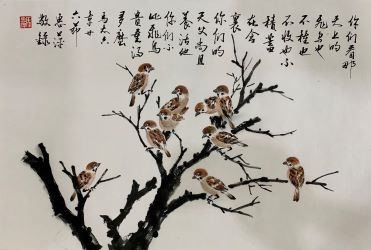 你们看那
天上的
飞鸟也
不种也
不收也不
积蓄
在仓
裏
你们的
天父尚且
养活他
你们不
比飞鸟
贵重得
多麽
马太六